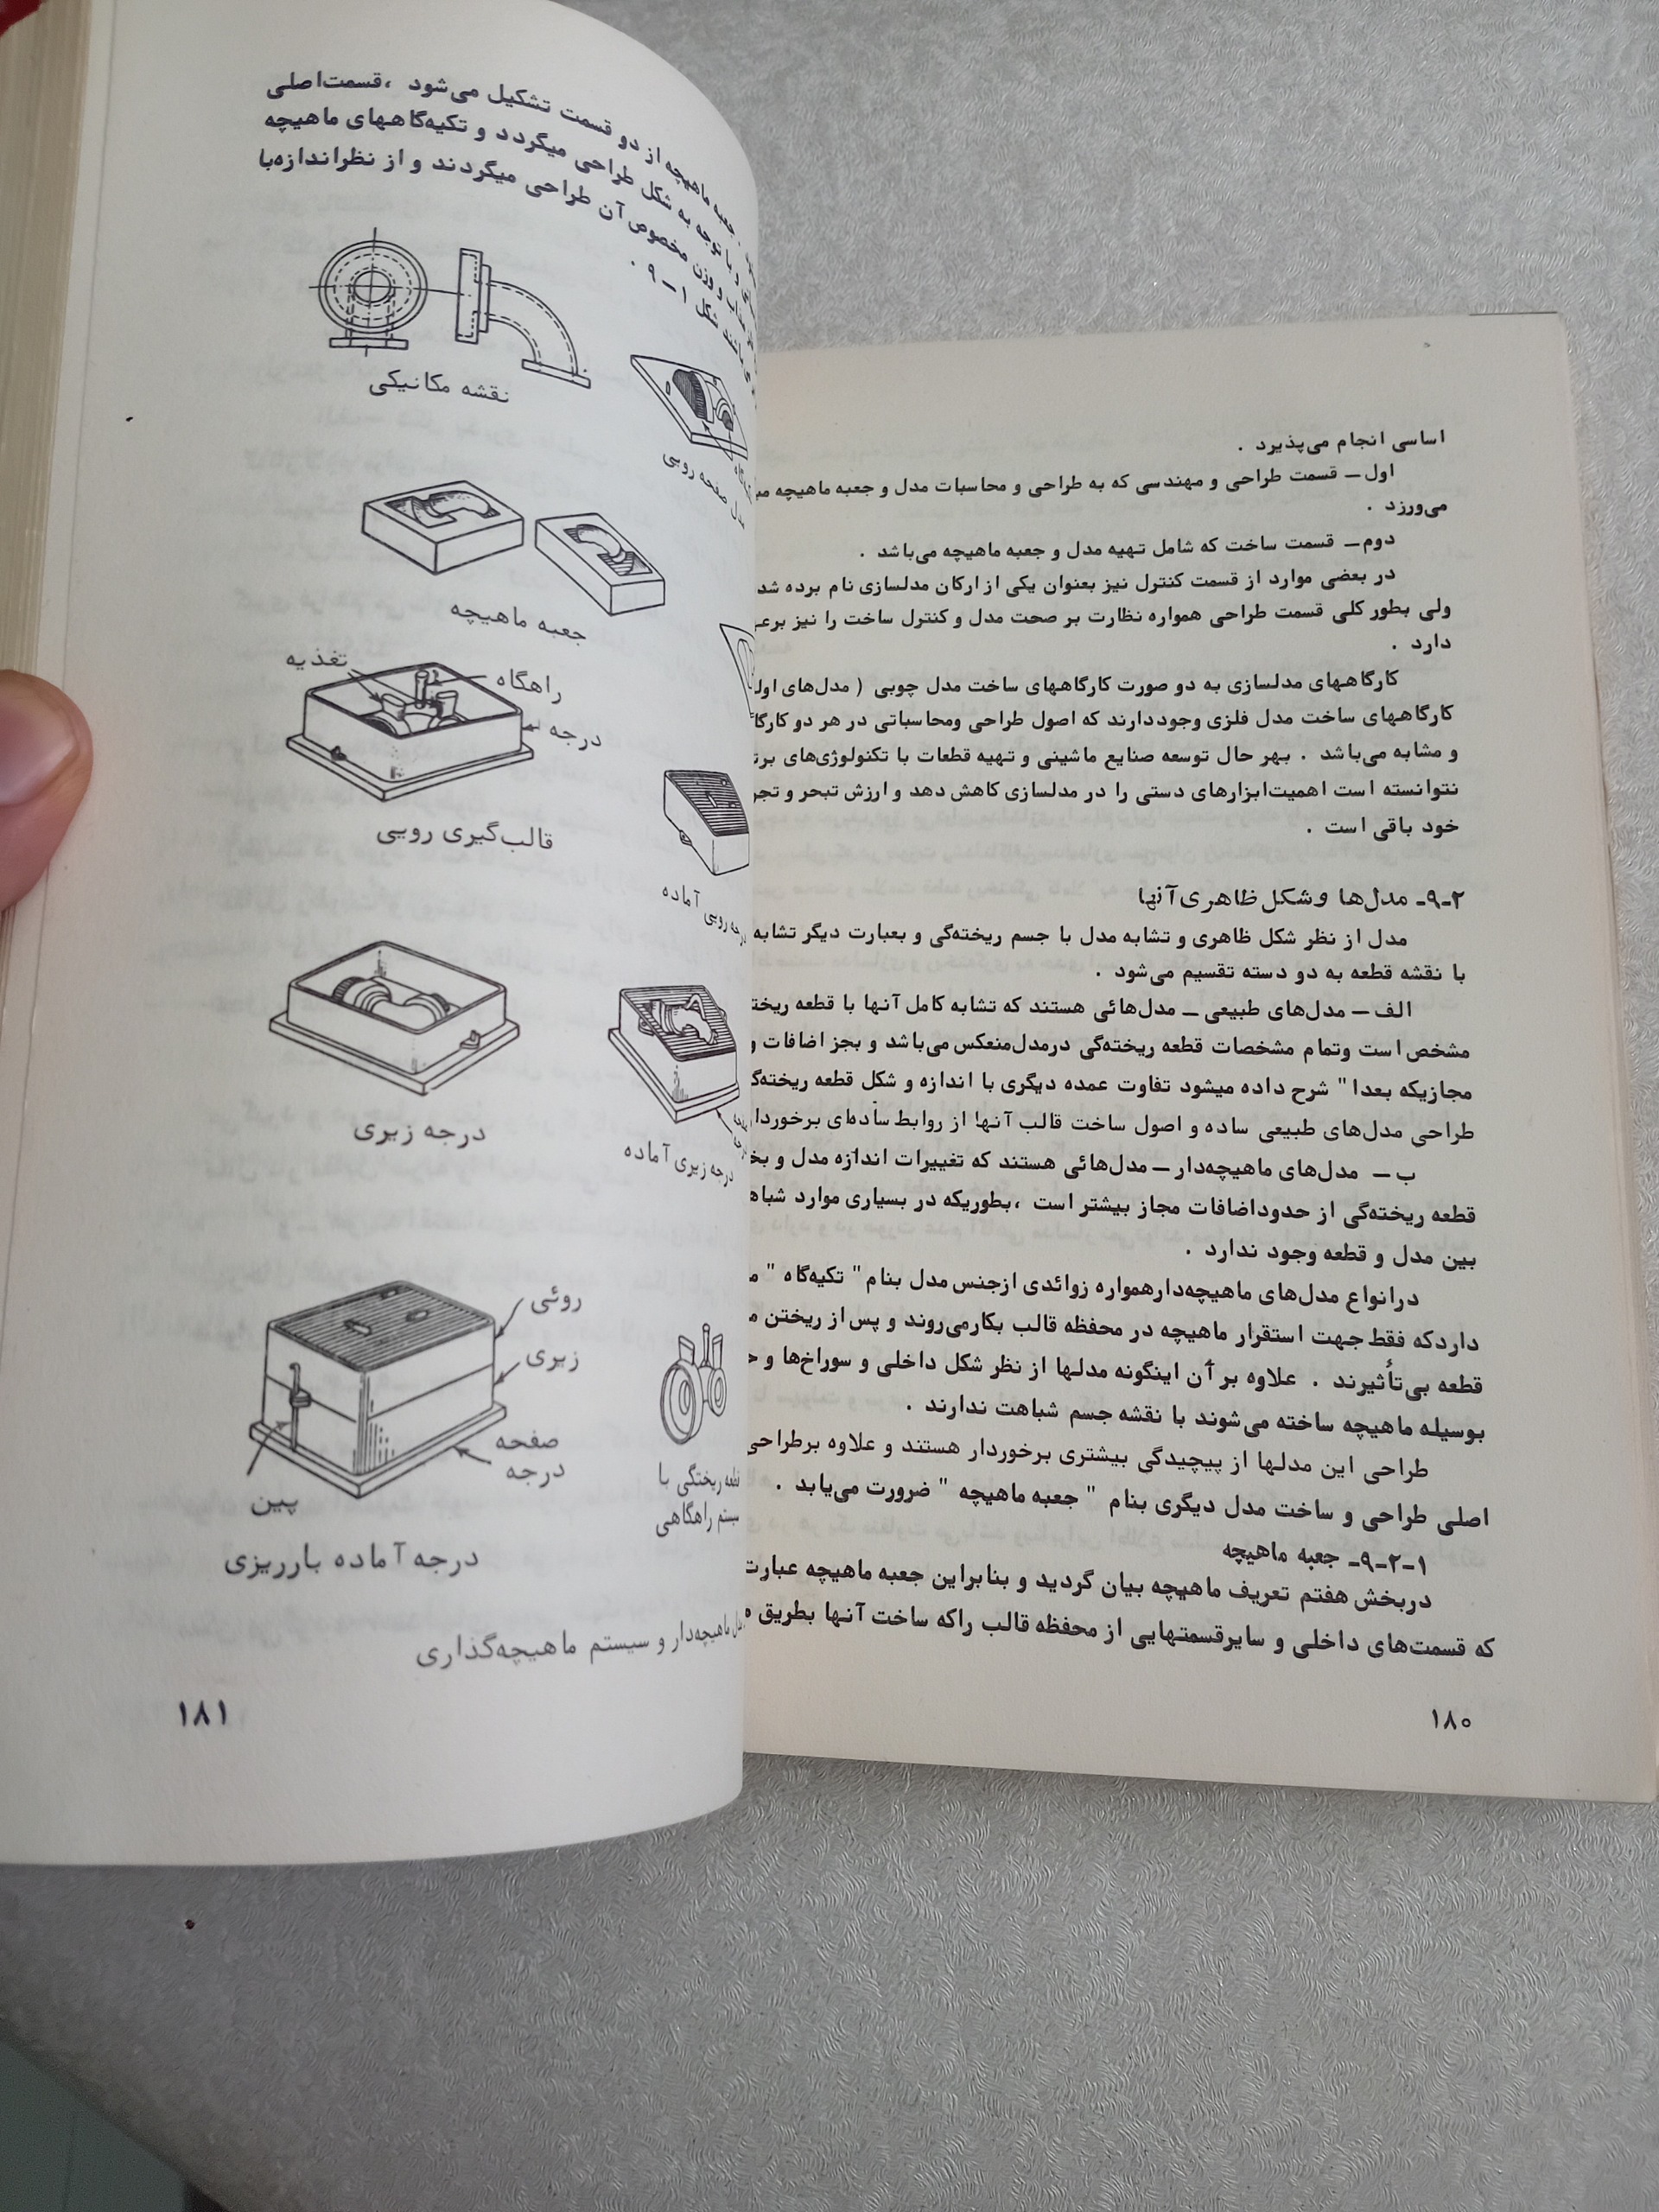 اساسی انجام می‌پذیرد .
اول – قسمت طراحی و مهندسی که به طراحی و محاسبات مدل و جعبه ماهیچه
می‌ورزد .
دوم – قسمت ساخت که شامل تهیه مدل و جعبه ماهیچه می‌باشد .
در بعضی موارد از قسمت کنترل نیز بعنوان یکی از ارکان مدلسازی نام برده شد
ولی بطور کلی قسمت طراحی همواره نظارت بر صحت مدل و کنترل ساخت را نیز
دارد .
کارگاههای مدلسازی به دو صورت کارگاههای ساخت مدل چوبی ( مدل‌های
کارگاههای ساخت مدل فلزی وجود دارند که اصول طراحی ومحاسباتی در هر دو
و مشابه می‌باشد . بهر حال توسعه صنایع ماشینی و تهیه قطعات با تکنولوژی‌های
نتوانسته است اهمیت‌ابزارهای دستی را در مدلسازی کاهش دهد و ارزش تبحر و
خود باقی است .
۹-۲- مدل‌ها و شکل ظاهری آنها
مدل از نظر شکل ظاهری و تشابه مدل با جسم ریخته‌گی و بعبارت دیگر تشابه
با نقشه قطعه به دو دسته تقسیم می‌شود .
الف – مدل‌های طبیعی – مدل‌هائی هستند که تشابه کامل آنها با قطعه
مشخص است وتمام مشخصات قطعه ریخته‌گی درمدل‌منعکس می‌باشد و بجز اضافات و
مجازیکه بعدا" شرح داده میشود تفاوت عمده دیگری با اندازه و شکل قطعه
طراحی مدل‌های طبیعی ساده و اصول ساخت قالب آنها از روابط ساده‌ای
ب – مدل‌های ماهیچه‌دار – مدل‌هائی هستند که تغییرات اندازه مدل و
قطعه ریخته‌گی از حدوداضافات مجاز بیشتر است ،بطوریکه در بسیاری موارد
بین مدل و قطعه وجود ندارد .
درانواع مدل‌های ماهیچه‌دارهمواره زوائدی ازجنس مدل بنام " تکیه‌گاه "
داردکه فقط جهت استقرار ماهیچه در محفظه قالب بکارمی‌روند و پس از ریختن
قطعه بی‌تأثیرند . علاوه بر آن اینگونه مدلها از نظر شکل داخلی و سوراخ‌ها و
بوسیله ماهیچه ساخته می‌شوند با نقشه جسم شباهت ندارند .
طراحی این مدلها از پیچیدگی بیشتری برخوردار هستند و علاوه برطراحی
اصلی طراحی و ساخت مدل دیگری بنام " جعبه ماهیچه " ضرورت می‌یابد .
۹-۲-۱- جعبه ماهیچه
دربخش هفتم تعریف ماهیچه بیان گردید و بنابراین جعبه ماهیچه
که قسمت‌های داخلی و سایرقسمتهایی از محفظه قالب راکه ساخت آنها بطریق
۱۸۰
جعبه ماهیچه از دو قسمت تشکیل می‌شود ،قسمت‌اصلی
با توجه به شکل طراحی میگردد و تکیه‌گاههای ماهیچه
وزن مخصوص آن طراحی میگردند و از نظراندازه‌با
مانند شکل ۱–۹ .
نقشه مکانیکی
مدل صفحه رویی
جعبه ماهیچه
تغذیه
راهگاه
درجه
قالب‌گیری رویی
درجه رویی آماده
درجه زیری
درجه زیری آماده
روئی
زیری
صفحه
درجه
پین
درجه آماده بارریزی
قطعه ریختگی با
سیستم راهگاهی
ماهیچه‌دار و سیستم ماهیچه‌گذاری
۱۸۱